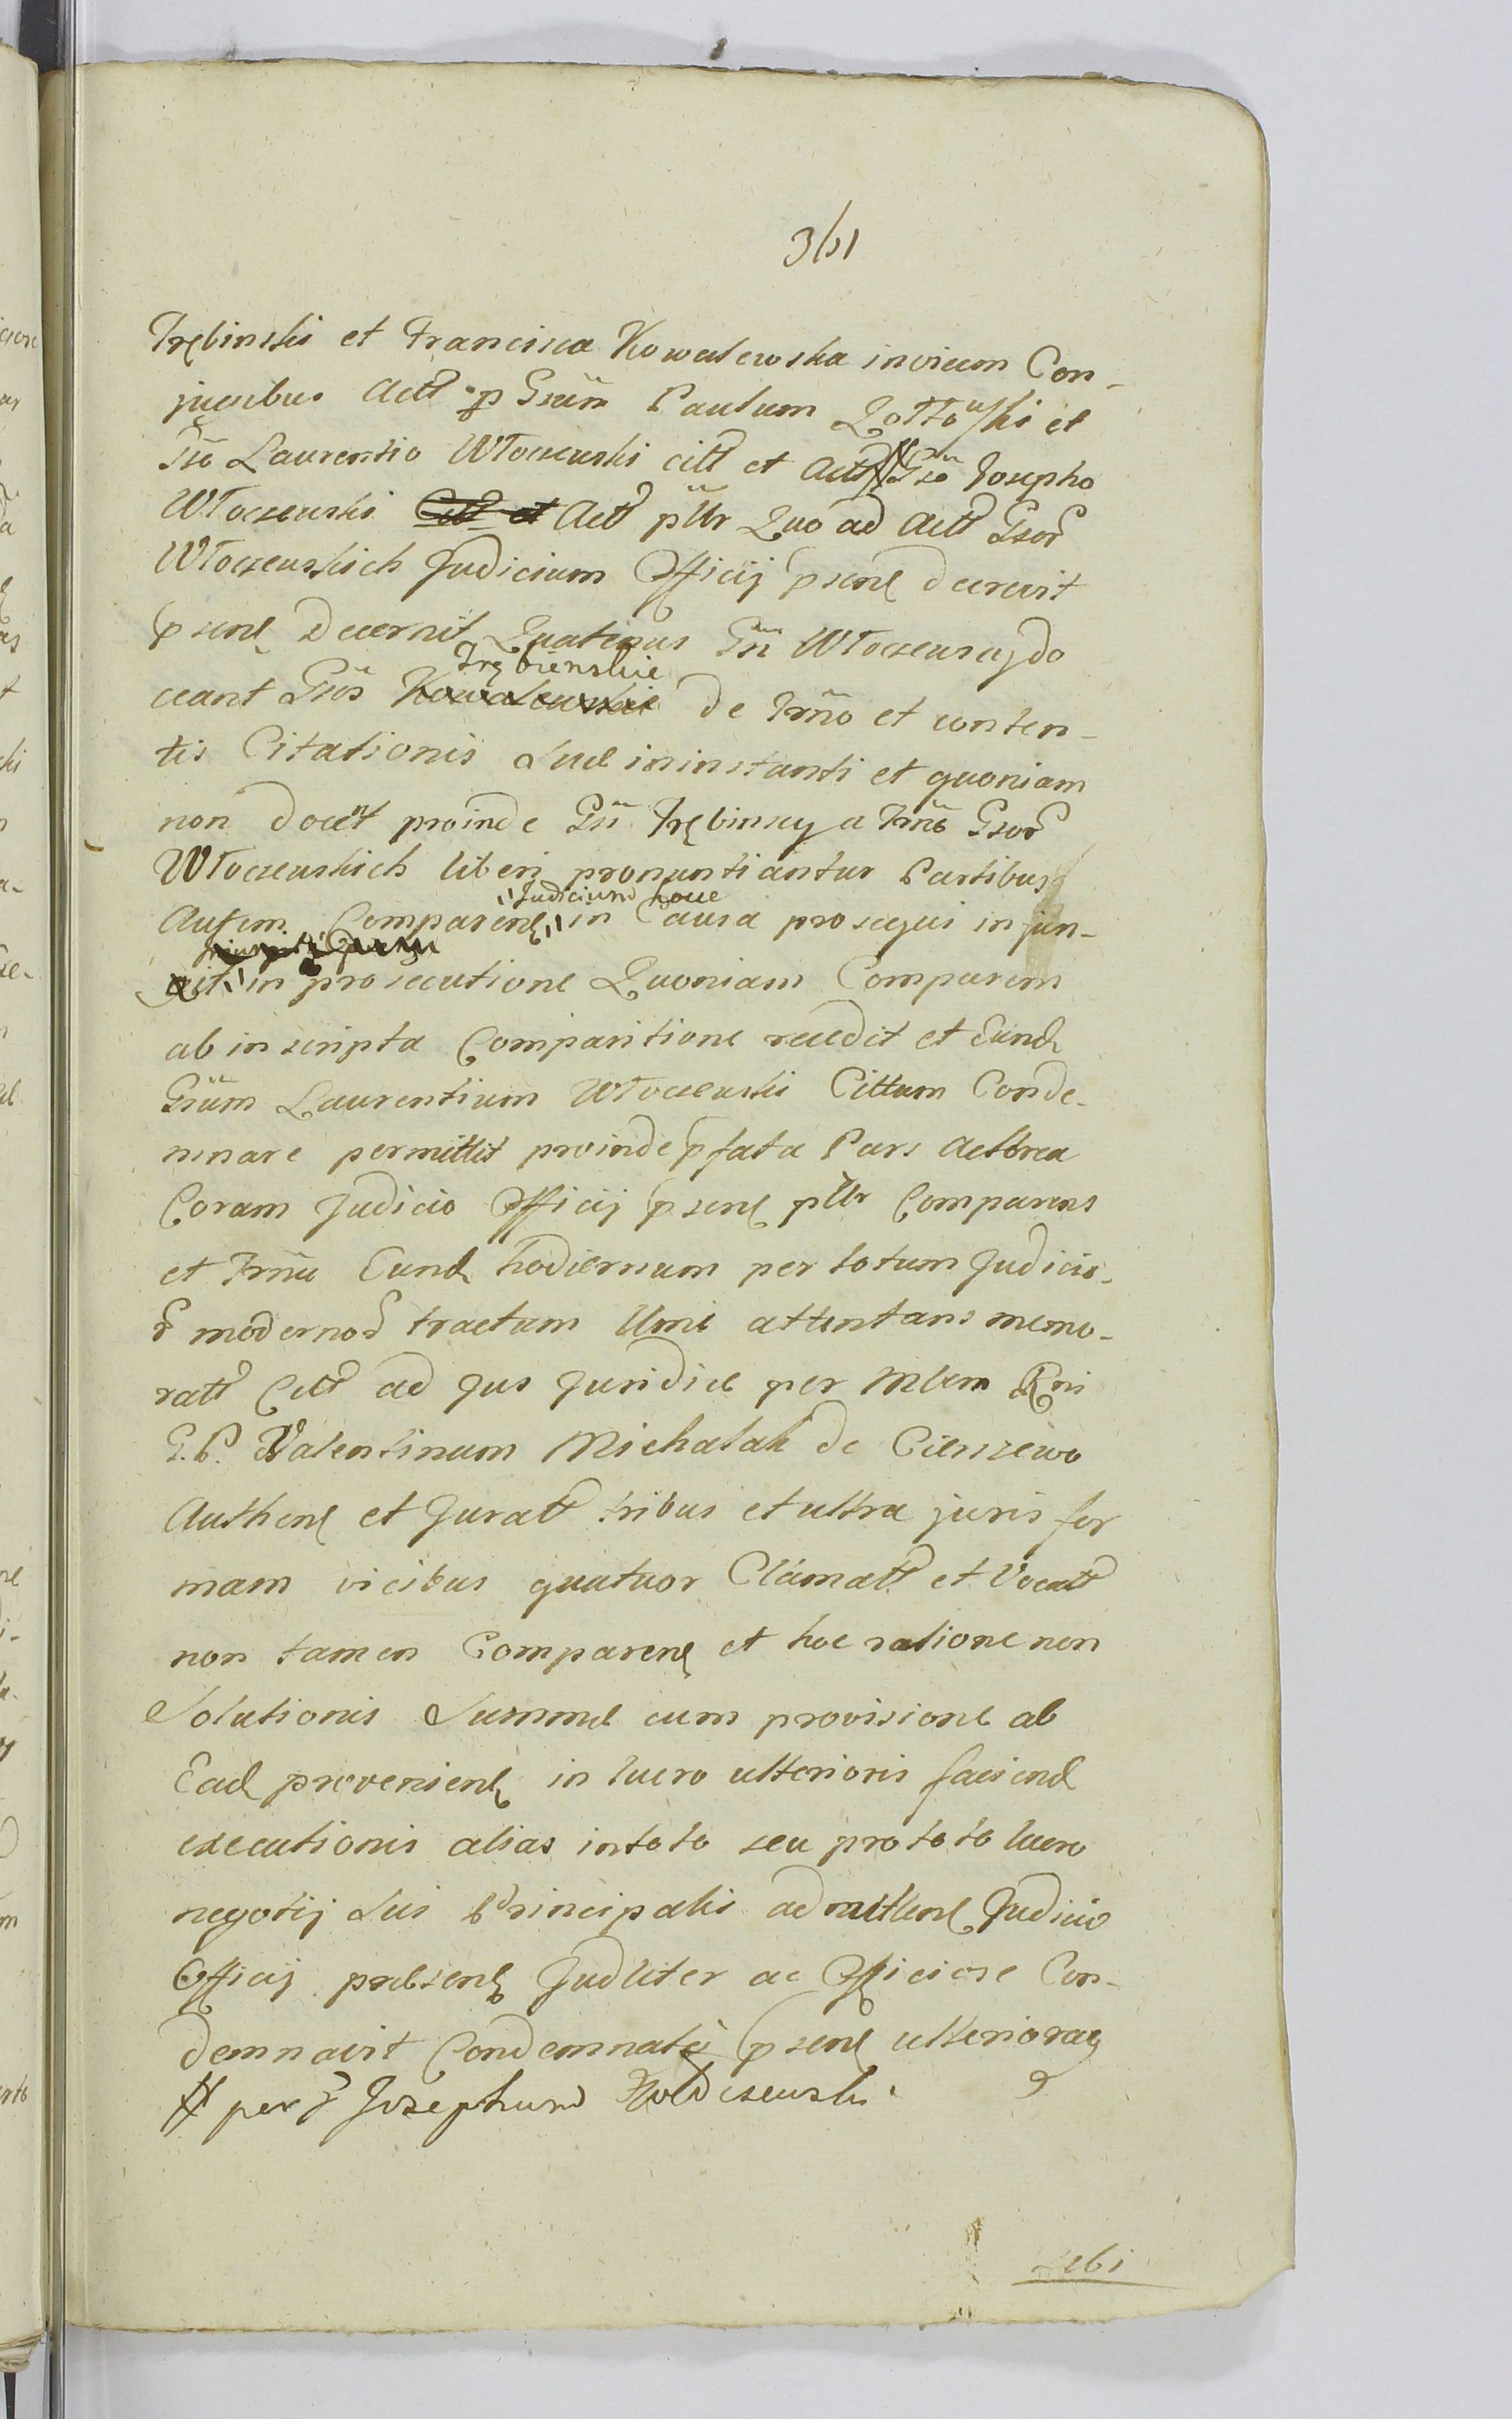 361
Trębinski et Francisca Kowalewska invicem Con-
jugibus Actt p Gsum Paulum Zołtowski et
Gso Laurentio Włoczewski citt et Actt # Gso Josepho
Włoczewski Citt et Actt pttr Quo ad Actt Gsor
Włoczewskich Judicium Officij psens decrevit
psens decernit Quatenus Gsi Włoczewscy do
Trębienskie
ceant Gsos Kowalewskie de Trmo et conten-
tis Citationis Suae ininstanti et quoniam
non docent proinde Gsi Trębinscy a Trmo Gsor
Włoczewskich liberi pronuntiantur Partibus
Judicium hocce
Autem Comparen in Causa prosequi injun-
xit in prosecutione Quoniam Comparens
ab inscripta Comparitione recedit et Eund
Gsum Laurentium Włoczewski Cittum Conde-
mnare permittit proinde pfata Pars Acttrea
Coram Judicio Officij psens pttr Comparens
et Trmu Eund hodiernum per totum Judicio-
r modernor tractum Ume attentans memo-
ratt Citt ad Jus Juridice per Mlem Rni
G. P. Valentinum Michalak de Cienszewo
Authen et Juratt tribus et ultra juris for
mam vicibus quatuor Clamatt et Vocatt
non tamen Comparen et hoc ratione non
Solutionis Summae cum provisione ab
Ead provenien in lucro ulterioris faciend
executionis alias intoto seu pro toto lucro
negotij Sui Principalis admitten Judicio
Officij praesen Judliter ac Officiose Con-
demnavit Condemnatq psens ulterioraq
# per Josephum
Sebi